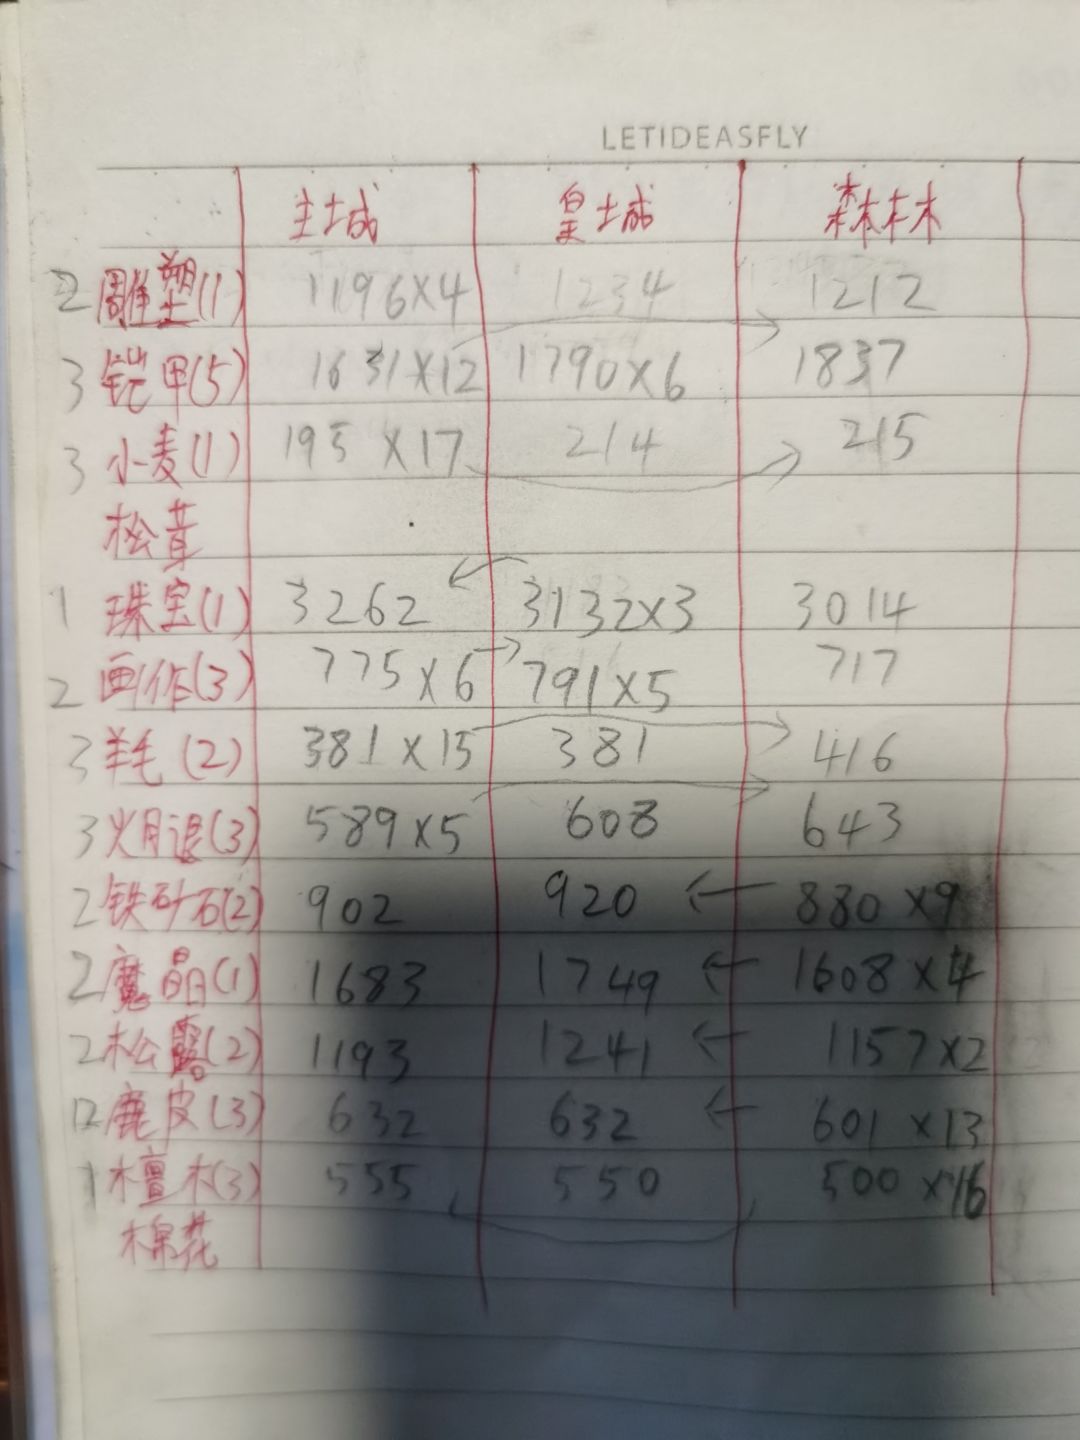 LETIDEASFLY
主城 皇城 森林
2 雕塑(1) 1196×4 1234 1212
3 铠甲(5) 1631×12 1790×6 1837
3 小麦(1) 195×17 214 215
松茸
1 珠宝(1) 3262 3132×3 3014
2 画作(3) 775×6 791×5 717
3 羊毛(2) 381×15 381 416
3 火月退(3) 589×5 608 643
2 铁矿石(2) 902 920 880×9
2 魔晶(1) 1683 1749 1608×4
2 松露(2) 1193 1241 1157×2
鹿皮(3) 632 632 601×13
1 檀木(3) 555 550 500×16
棉花